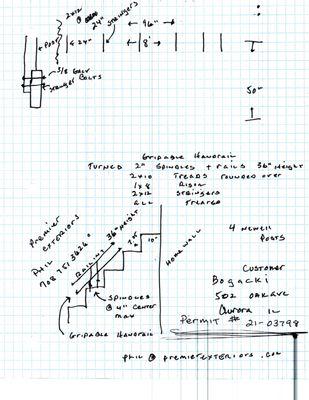 2x12 @
24" Stringers
96"
Post
24"
8'
5/8 Bolt
Stringer Bolts
50"
Gripable Handrail
Turned 2" Spindles + Rails 36" Height
2x10 Treads rounded over
1x8 Risin
2x12 Stringers
All Treated
Premier
Exteriors
Phil
Railing
36" Height
10"
Spindles
@ 4" Center
max
Gripable Handrail
Home Wall
4 Newell
Posts
Customer
Bogacki
502 Oak Ave
Aurora IL
Permit # 21-03798
phil @ premierexteriors.com